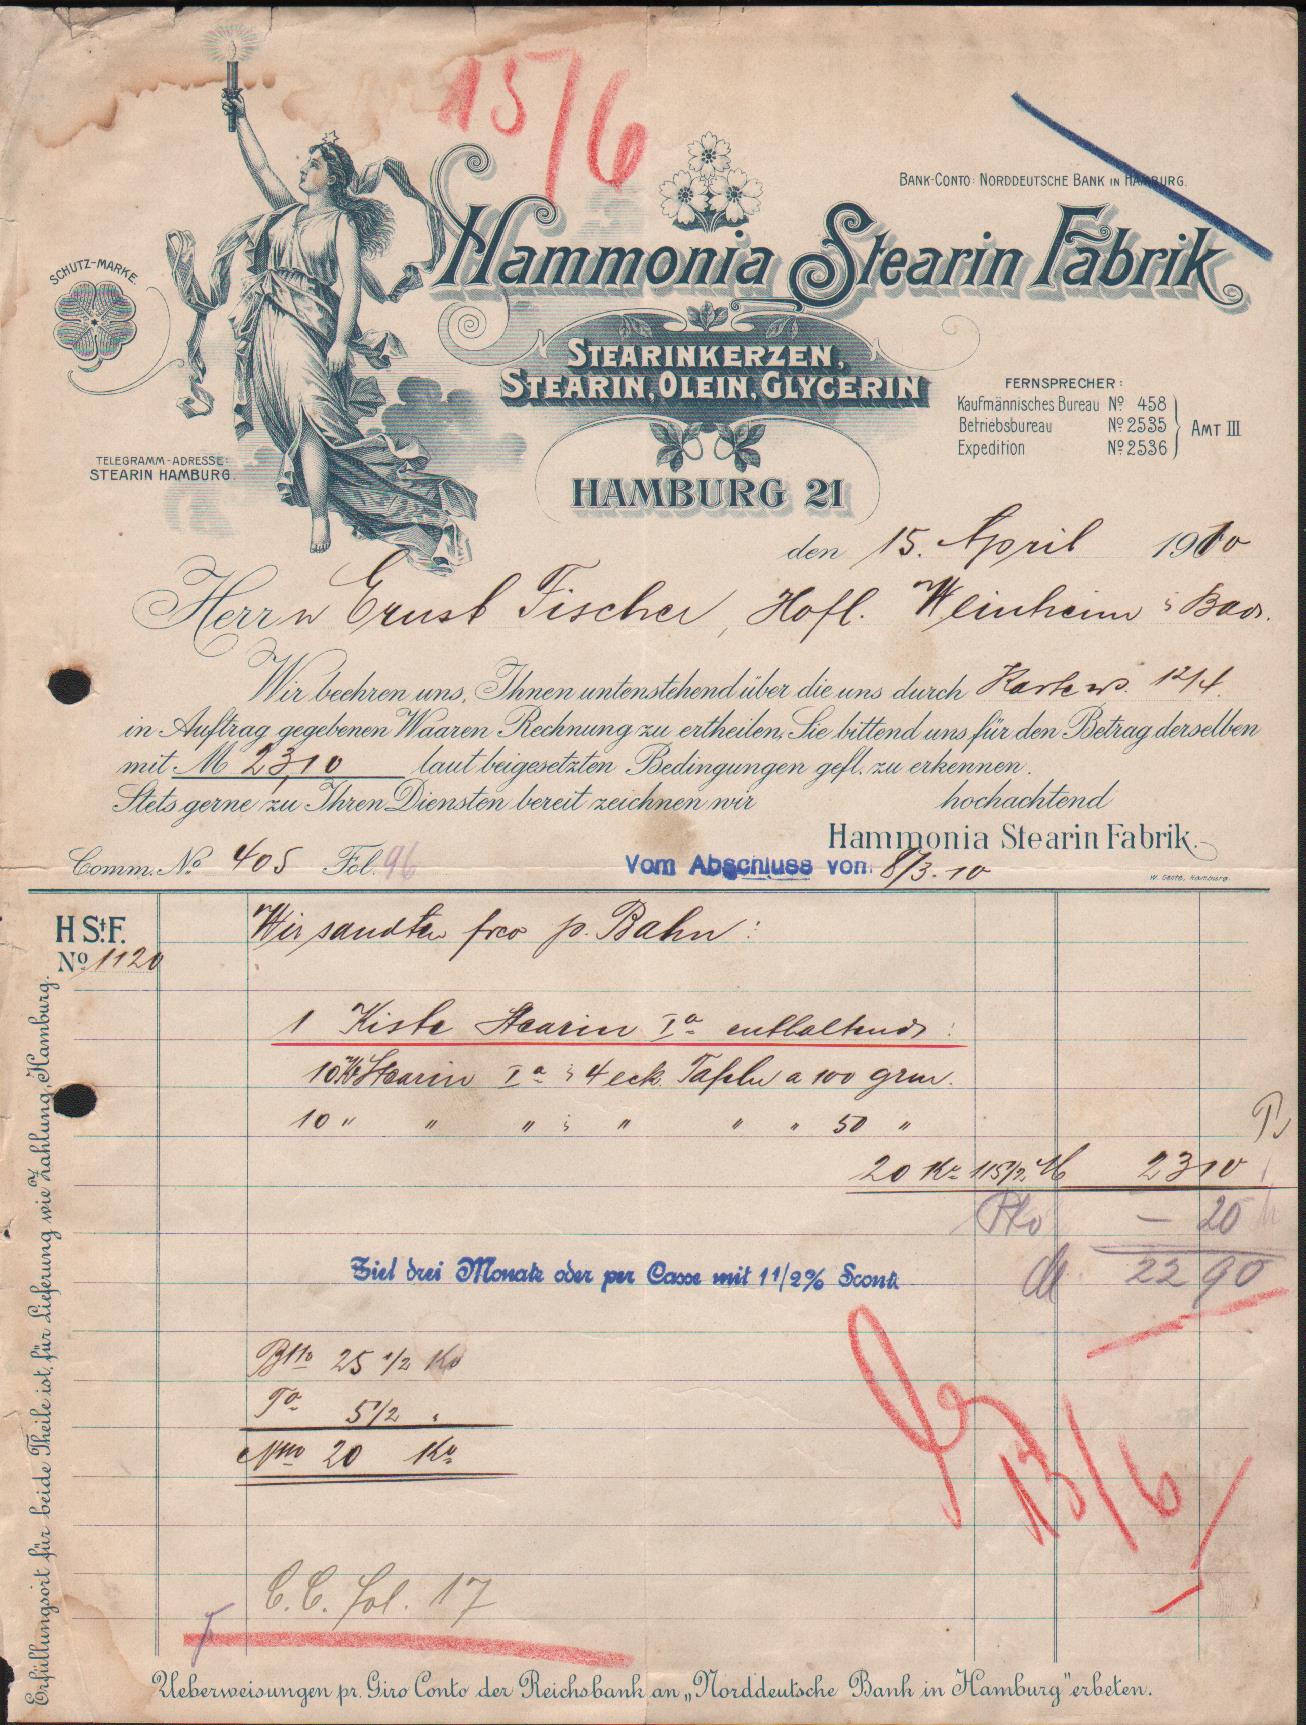 15/6
BANK-CONTO: NORDDEUTSCHE BANK IN HAMBURG.
SCHUTZ-MARKE
Hammonia Stearin Fabrik
STEARINKERZEN,
STEARIN, OLEIN, GLYCERIN
HAMBURG 21
FERNSPRECHER:
Kaufmännisches Bureau No 458
Betriebsbureau No 2535
Expedition No 2536
AMT III
TELEGRAMM-ADRESSE:
STEARIN HAMBURG.
den 15. April 1910
Herrn Ernst Fischer, Hofl. Weinheim i Bad.
Wir beehren uns, Ihnen untenstehend über die uns durch Karte v. 12/4.
in Auftrag gegebenen Waaren Rechnung zu ertheilen, Sie bittend uns für den Betrag derselben
mit M 23,10 laut beigesetzten Bedingungen gefl. zu erkennen.
Stets gerne zu Ihren Diensten bereit zeichnen wir hochachtend
Hammonia Stearin Fabrik.
Comm. No 405 Fol. 96
Vom Abschluss von 8/3.10
W. Gente, Hamburg.
H St. F.
No 1120
Wir sandten frco p. Bahn:
1 Kiste Stearin Ia enthaltend:
10 Ko Stearin Ia i 4 eck. Tafeln a 100 grm.
10 " " " i " " " 50 "
20 Ko 115 1/2 M 23 10
Pto — 20
M 22 90
Ziel drei Monate oder per Casse mit 1 1/2% Sconto
Btto 25 1/2 Ko
Ta 5 1/2 "
Ntto 20 Ko
13/6
C.C. fol. 17
Erfüllungsort für beide Theile ist, für Lieferung wie Zahlung, Hamburg.
Ueberweisungen pr. Giro Conto der Reichsbank an „Norddeutsche Bank in Hamburg" erbeten.